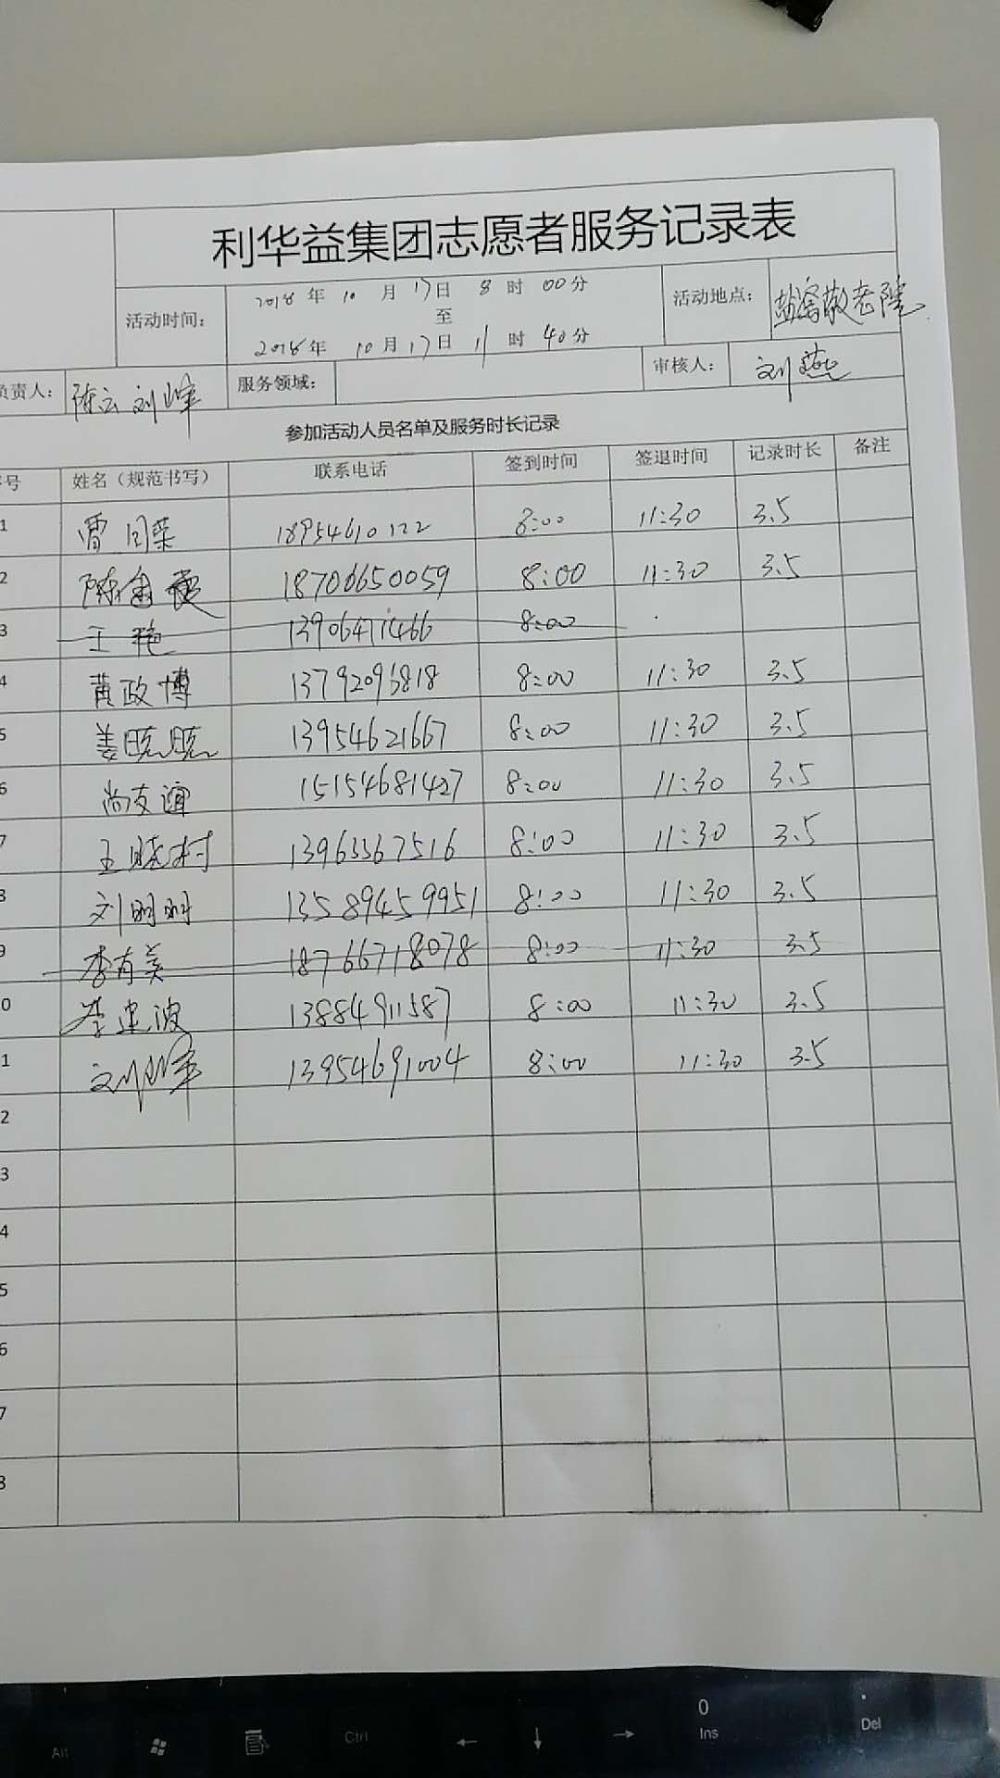 利华益集团志愿者服务记录表
活动时间： 2018年 10月 17日 8时 00分 至 2018年 10月 17日 11时 40分 活动地点： 盐窝敬老院
负责人： 陈云 刘峰 服务领域： 审核人： 刘燕
参加活动人员名单及服务时长记录
号 姓名（规范书写） 联系电话 签到时间 签退时间 记录时长 备注
1 18954610122 8:00 11:30 3.5
2 18706650059 8:00 11:30 3.5
3 王艳 13906471466 8:00
4 黄政博 13792096818 8:00 11:30 3.5
5 姜晓晓 13954621667 8:00 11:30 3.5
6 尚友谊 15154681427 8:00 11:30 3.5
7 王晓村 13963367516 8:00 11:30 3.5
8 刘明明 13589459951 8:00 11:30 3.5
9 李有美 18766718078 8:00 11:30 3.5
0 李建波 13884911587 8:00 11:30 3.5
1 刘峰 13954691004 8:00 11:30 3.5
2
3
4
5
6
7
8
Alt Ctrl ← ↓ → 0 Ins . Del